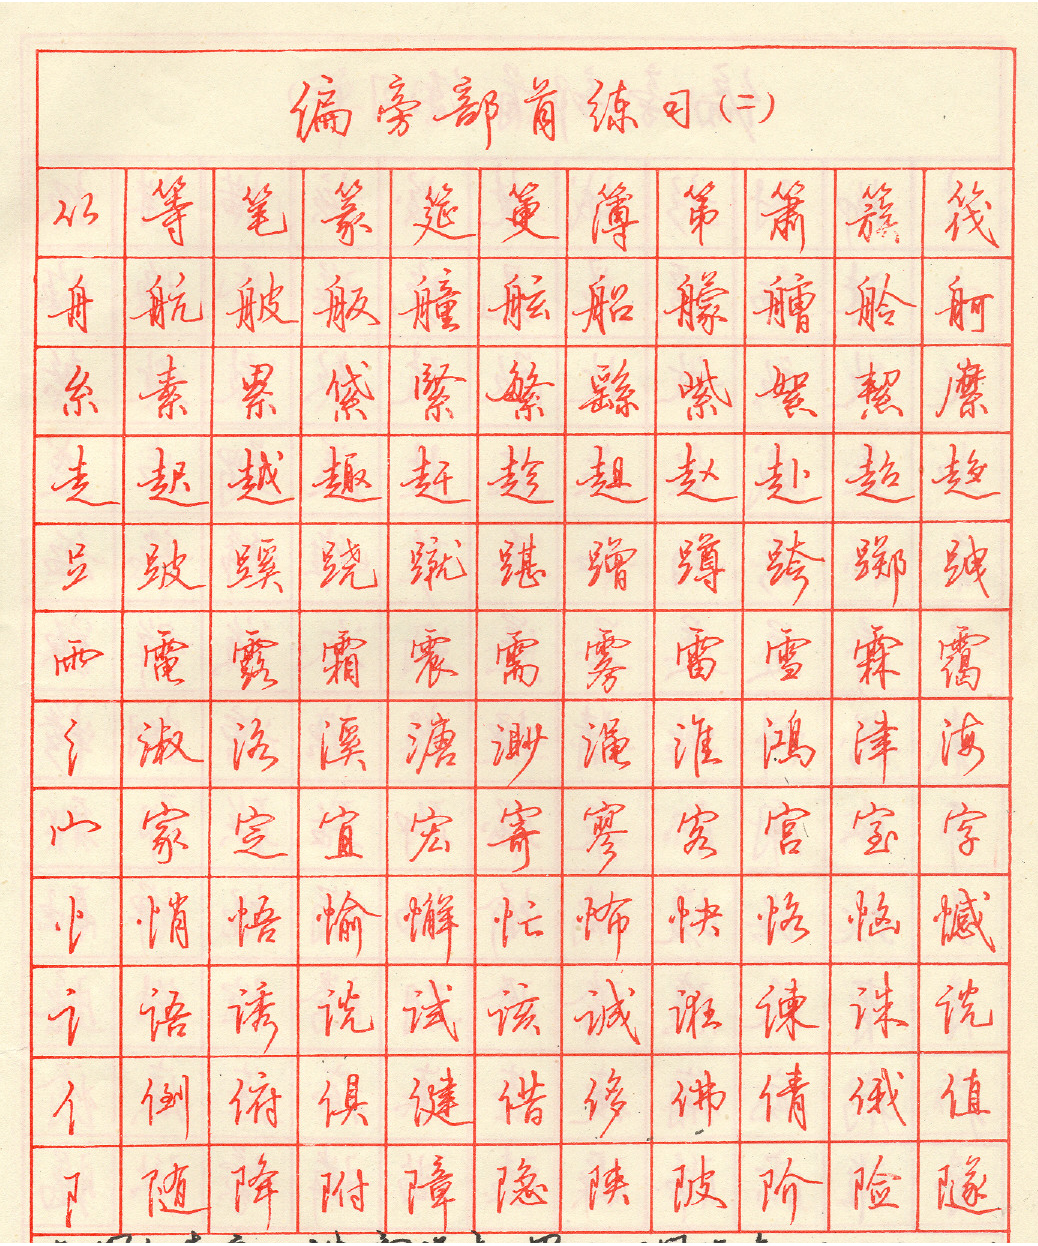 编旁部首练习(二)
⺮ 等 笔 篆 筵 簿 第 萧 簇 筏
舟 航 舨 艟 舷 船 艨 艚 舲 舸
糸 素 累 紧 繁 紫 絮 絜 縻
走 起 越 趣 赶 趁 趄 赵 赴 超 趋
𧾷 跛 蹊 跷 蹴 踸 蹭 蹲 跨 踯 跋
雨 電 露 霜 震 需 雾 雷 雪 霖 霭
氵 淑 洛 溪 溏 渺 淮 鸿 津 海
宀 家 定 宜 宏 寄 寥 客 宫 室 字
忄 悄 悟 愉 懈 忙 怖 快 恪 恼 憾
讠 语 诱 说 试 该 诚 诳 谏 诛 说
亻 倒 俯 俱 健 偕 侈 佛 倩 俄 值
阝 随 降 附 障 隐 陕 陂 阶 险 隧